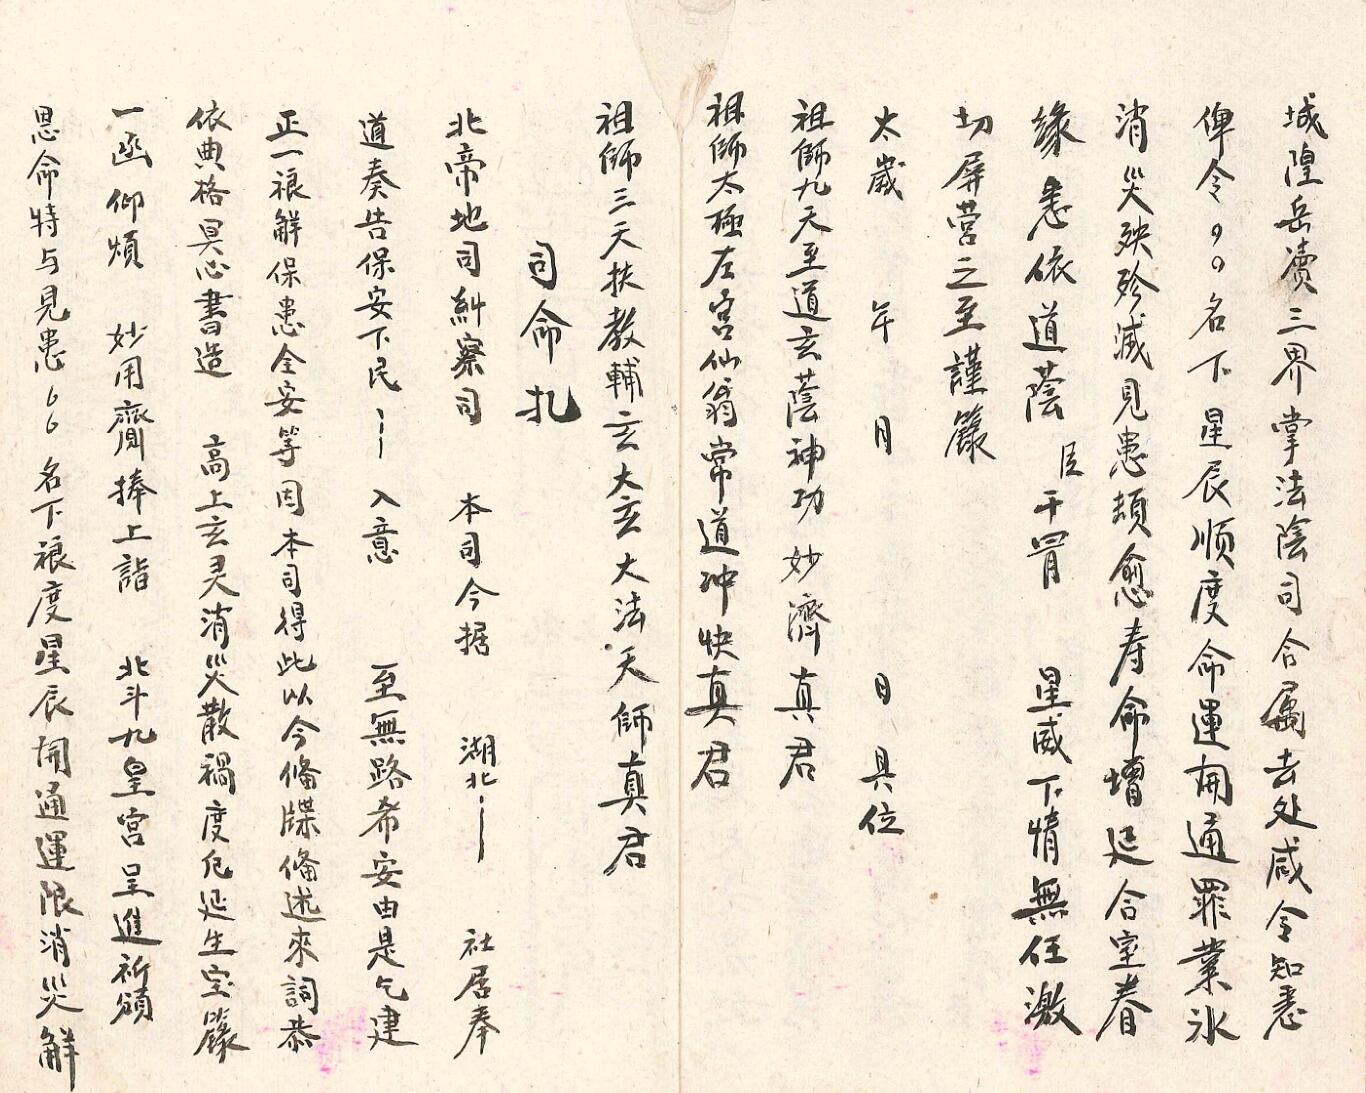 城隍岳瀆三界掌法陰司合屬去处咸令知悉
俾令99名下星辰順度命運開通罪業氷
消災殃殄滅見患頓愈寿命增延合室眷
緣悉依道蔭 臣干冒 星威下情無任激
切屏营之至謹籙
太歲 年 月 日具位
祖師九天至道玄蔭神功妙濟真君
祖師太極左宫仙翁常道冲快真君
祖師三天扶教輔玄大玄大法天師真君
司命扎
北帝地司糾察司 本司今据 湖北 社居奉
道奏告保安下民 入意 至無路希安由是乞建
正一禳解保患全安等因本司得此以今俻牒俻述來詞恭
依典格冥心書造 高上玄灵消災散禍度厄延生宝籙
一函仰煩 妙用齎捧上詣 北斗九皇宮呈進祈頒
恩命特与見患66名下禳度星辰開通運限消災解